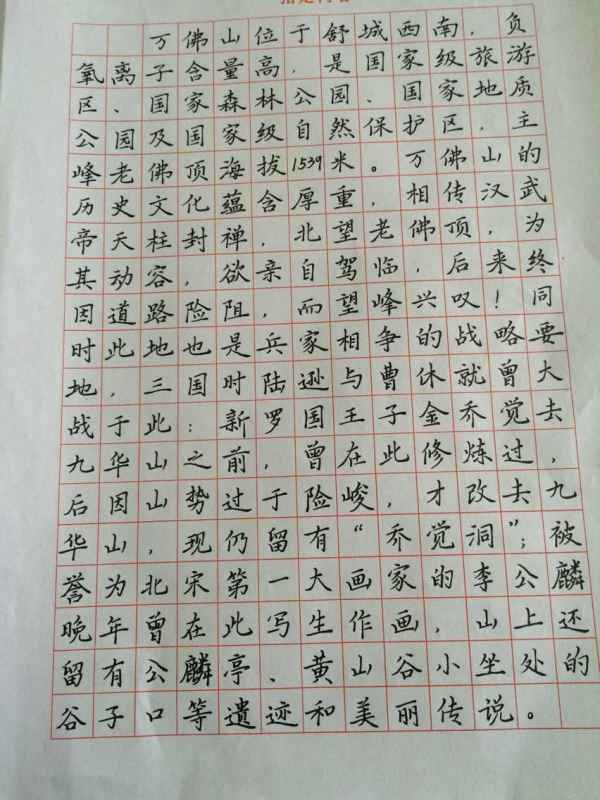 万佛山位于舒城西南，负
氧离子含量高，是国家级旅游
区、国家森林公园、国家地质
公园及国家级自然保护区，主
峰老佛顶海拔1539米。万佛山的
历史文化蕴含厚重，相传汉武
帝天柱封禅，北望老佛顶，为
其动容，欲亲自驾临，后来终
因道路险阻，而望峰兴叹！同
时此地也是兵家相争的战略要
地，三国时陆逊与曹休就曾大
战于此；新罗国王子金乔觉去
九华山之前，曾在此修炼过，
后因山势过于险峻，才改去九
华山，现仍留有“乔觉洞”；被
誉为北宋第一大画家的李公麟
晚年曾在此写生作画，山上还
留有公麟亭、黄山谷小坐处的
谷子口等遗迹和美丽传说。